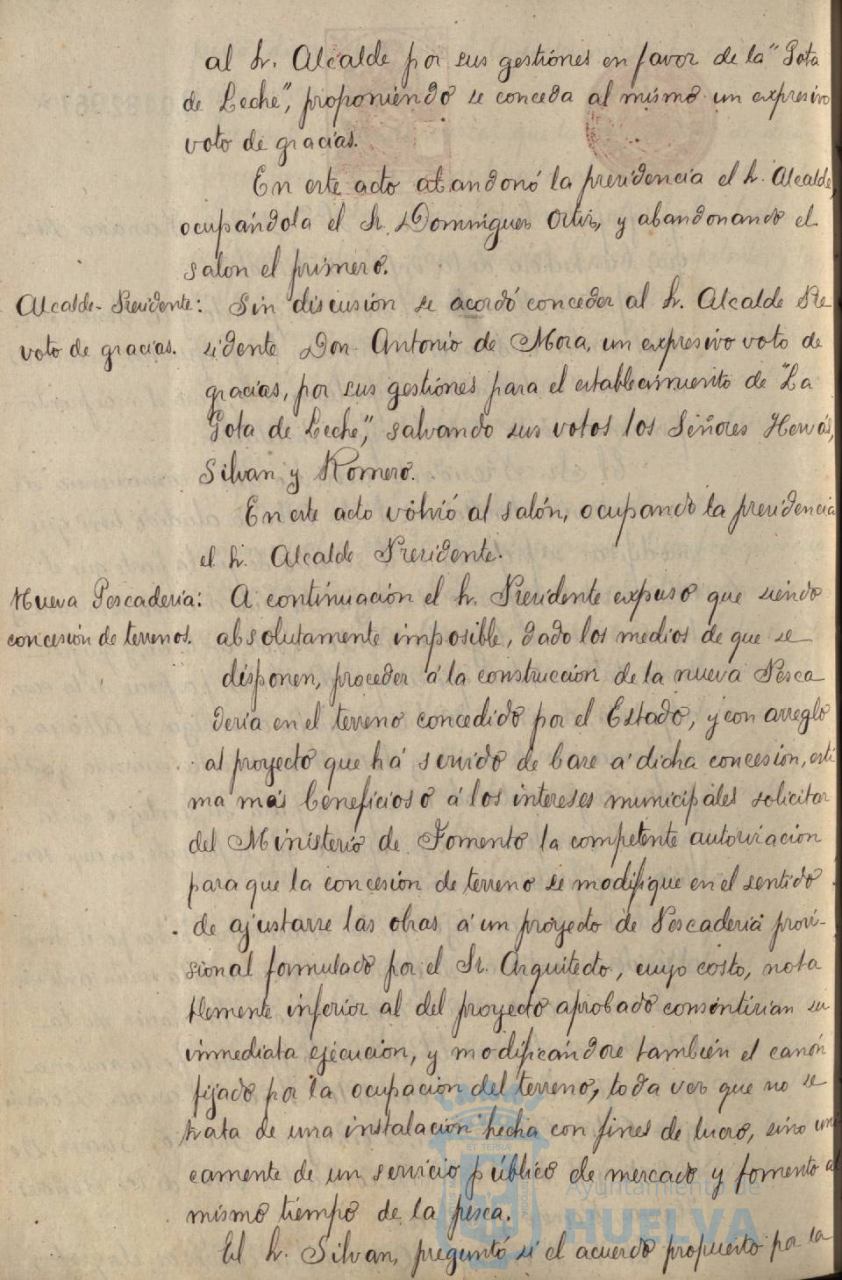 al Sr. Alcalde por sus gestiones en favor de la "Gota
de Leche", proponiendo se conceda al mismo un expresivo
voto de gracias.
En este acto abandonó la presidencia el Sr. Alcalde,
ocupándola el Sr. Dominguez Ortiz, y abandonando el
salon el primero.
Alcalde-Presidente:
voto de gracias.
Sin discusión se acordó conceder al Sr. Alcalde Pre
sidente Don Antonio de Mora, un expresivo voto de
gracias, por sus gestiones para el establecimiento de "La
Gota de Leche", salvando sus votos los Señores Hervás,
Silvan y Romero.
En este acto volvió al salón, ocupando la presidencia
el Sr. Alcalde Presidente.
Nueva Pescaderia:
concesión de terrenos.
A continuación el Sr. Presidente expuso que siendo
absolutamente imposible, dado los medios de que se
disponen, proceder á la construcción de la nueva Pesca
deria en el terreno concedido por el Estado, y con arreglo
al proyecto que há servido de base á dicha concesión, esti
ma más beneficioso á los intereses municipales solicitar
del Ministerio de Fomento la competente autorizacion
para que la concesión de terreno se modifique en el sentido
de ajustarse las obras á un proyecto de Pescaderia provi-
sional formulado por el Sr. Arquitecto, cuyo costo, nota
blemente inferior al del proyecto aprobado consentirian su
inmediata ejecucion, y modificándose también el canón
fijado por la ocupación del terreno, toda vez que no se
trata de una instalación hecha con fines de lucro, sino uni
camente de un servicio público de mercado y fomento al
mismo tiempo de la pesca.
El Sr. Silvan, preguntó si el acuerdo propuesto por la
Ayuntamiento de
HUELVA